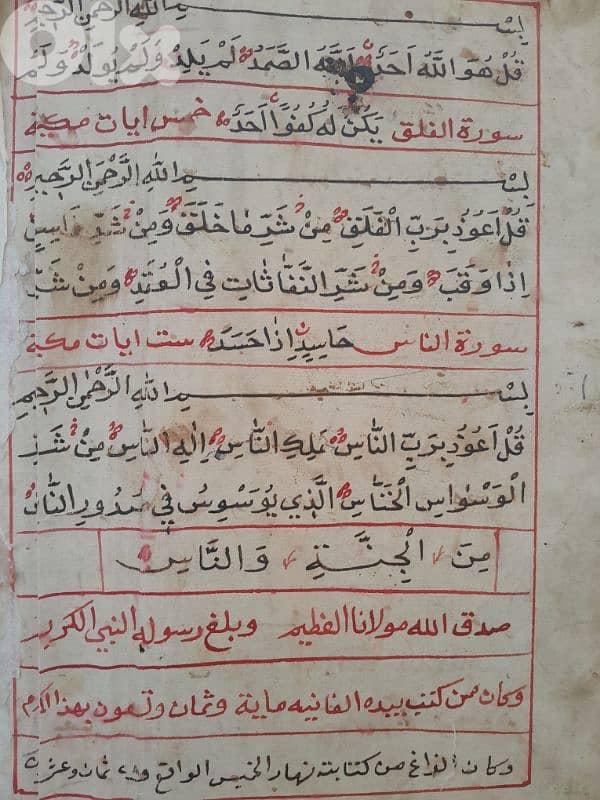 بسم الله الرحمن الرحيم
قُلْ هُوَ اللَّهُ اَحَدٌ اَللَّهُ الصَّمَدُ لَمْ يَلِدْ وَلَمْ يُولَدْ وَلَمْ
سورة الفلق يَكُنْ لَهُ كُفُوًا اَحَدٌ خمس ايات مكية
بِسْمِ اللهِ الرَّحْمٰنِ الرَّحِيمِ
قُلْ اَعُوذُ بِرَبِّ الْفَلَقِ مِنْ شَرِّ مَا خَلَقَ وَمِنْ شَرِّ غَاسِقٍ
اِذَا وَقَبَ وَمِنْ شَرِّ النَّفَّاثَاتِ فِي الْعُقَدِ وَمِنْ شَرِّ
سورة الناس حَاسِدٍ اِذَا حَسَدَ ست ايات مكية
بِسْمِ اللهِ الرَّحْمٰنِ الرَّحِيمِ
قُلْ اَعُوذُ بِرَبِّ النَّاسِ مَلِكِ النَّاسِ اِلٰهِ النَّاسِ مِنْ شَرِّ
الْوَسْوَاسِ الْخَنَّاسِ الَّذِي يُوَسْوِسُ فِي صُدُورِ النَّاسِ
مِنَ الْجِنَّةِ وَالنَّاسِ
صدق الله مولانا العظيم وبلغ رسوله النبي الكريم
وكان من كتب بيده الفانيه ماية وثمان وتسعون بهذا
وكان الفراغ من كتابته نهار الخميس الواقع في ثمان وعشرين